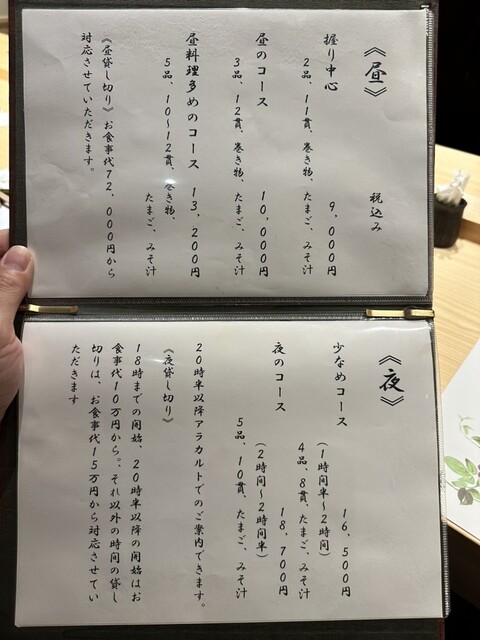 《昼》 税込み
握り中心 9,000円
2品、11貫、巻き物、たまご、みそ汁
昼のコース 10,000円
3品、12貫、巻き物、たまご、みそ汁
昼料理多めのコース 13,200円
5品、10〜12貫、巻き物、
たまご、みそ汁
《昼貸し切り》お食事代72,000円から
対応させていただきます。
《夜》
少なめコース 16,500円
(1時間半〜2時間)
4品、8貫、たまご、みそ汁
夜のコース 18,700円
(2時間〜2時間半)
5品、10貫、たまご、みそ汁
20時半以降アラカルトでのご案内できます。
《夜貸し切り》
18時までの開始、20時半以降の開始はお
食事代10万円から。、それ以外の時間の貸し
切りは、お食事代15万円から対応させてい
ただきます